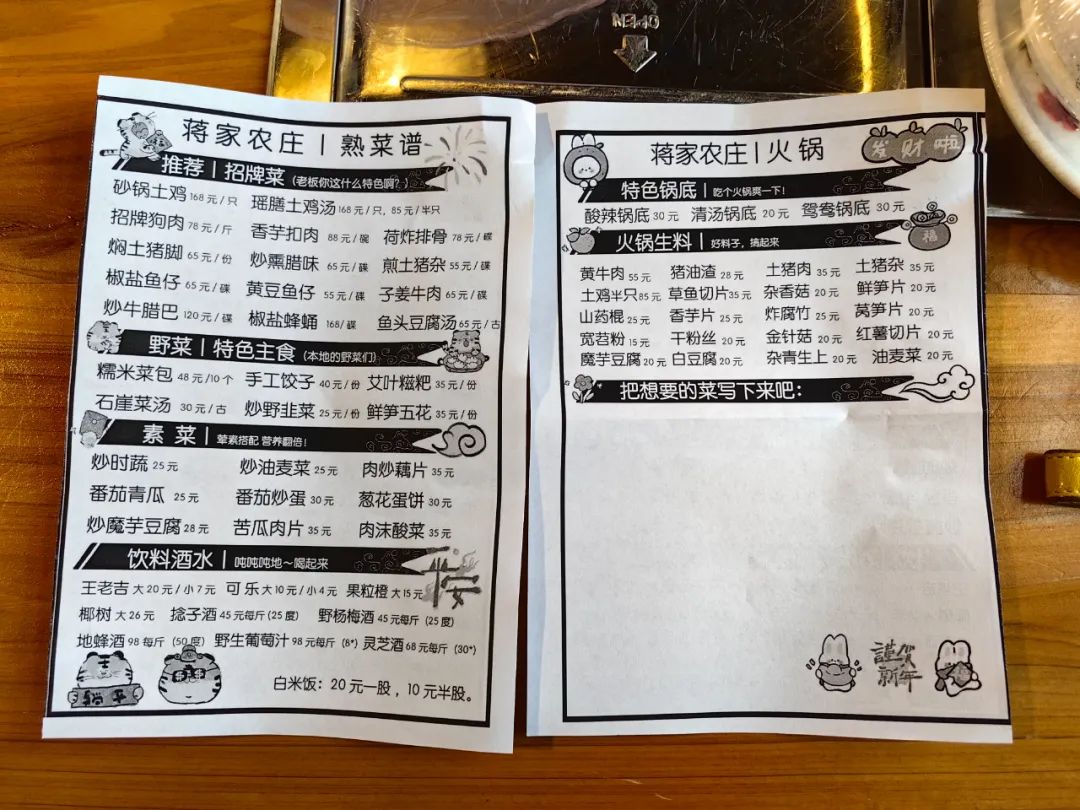 OPEN
蒋家农庄 | 熟菜谱
推荐 | 招牌菜 (老板你这什么特色啊?)
砂锅土鸡 168元/只 瑶膳土鸡汤 168元/只, 85元/半只
招牌狗肉 78元/斤 香芋扣肉 88元/碗 荷炸排骨 78元/碟
焖土猪脚 65元/份 炒熏腊味 65元/碟 煎土猪杂 55元/碟
椒盐鱼仔 65元/碟 黄豆鱼仔 55元/碟 子姜牛肉 65元/碟
炒牛腊巴 120元/碟 椒盐蜂蛹 168/碟 鱼头豆腐汤 65元/古
野菜 | 特色主食 (本地的野菜们)
糯米菜包 48元/10个 手工饺子 40元/份 艾叶糍粑 35元/份
石崖菜汤 30元/古 炒野韭菜 25元/份 鲜笋五花 35元/份
素菜 | 荤素搭配 营养翻倍!
炒时蔬 25元 炒油麦菜 25元 肉炒藕片 35元
番茄青瓜 25元 番茄炒蛋 30元 葱花蛋饼 30元
炒魔芋豆腐 28元 苦瓜肉片 35元 肉沫酸菜 35元
饮料酒水 | 吨吨吨地~喝起来
王老吉 大20元/小7元 可乐 大10元/小4元 果粒橙 大15元
椰树 大26元 捻子酒 45元每斤 (25度) 野杨梅酒 45元每斤 (25度)
地蜂酒 98每斤 (50度) 野生葡萄汁 98元每斤 (8°) 灵芝酒 68元每斤 (30°)
平安
躺平
白米饭：20元一股，10元半股。
蒋家农庄 | 火锅
发财啦
特色锅底 | 吃个火锅爽一下!
酸辣锅底 30元 清汤锅底 20元 鸳鸯锅底 30元
火锅生料 | 好料子，搞起来
福
黄牛肉 55元 猪油渣 28元 土猪肉 35元 土猪杂 35元
土鸡半只 85元 草鱼切片 35元 杂香菇 20元 鲜笋片 20元
山药棍 25元 香芋片 25元 炸腐竹 25元 莴笋片 20元
宽苕粉 15元 干粉丝 20元 金针菇 20元 红薯切片 20元
魔芋豆腐 20元 白豆腐 20元 杂青生上 20元 油麦菜 20元
把想要的菜写下来吧：
謹賀
新年